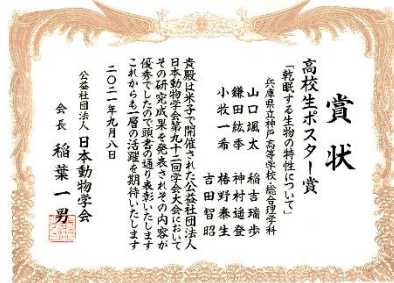 賞状
高校生ポスター賞
「乾眠する生物の特性について」
兵庫県立神戸高等学校・総合理学科
山口颯太 稲吉瑞歩
鎌田紘季 神村遥登
小牧一希 椿野泰生
吉田智昭
貴殿は米子で開催された公益社団法人
日本動物学会第九十二回学会大会において
その研究成果を発表されその内容が
優秀でしたので頭書の通り表彰いたします
これからも一層の活躍を期待いたします
二〇二一年九月八日
公益社団法人 日本動物学会
会長 稲葉一男